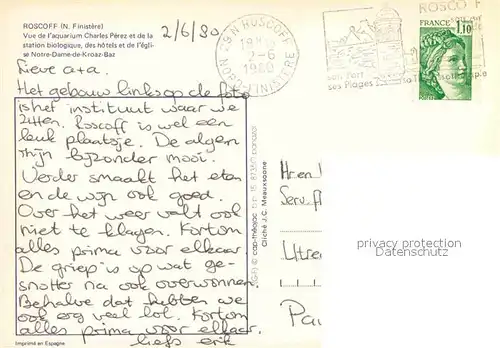 ROSCOFF (N. Finistère)
Vue de l'aquarium Charles Pérez et de la
station biologique, des hôtels et de l'égli-
se Notre-Dame-de-Kroaz-Baz
2/6/80
Lieve a+a.
Het gebouw links op de foto
is het instituut waar we
zitten. Roscoff is wel een
leuk plaatsje. De algen
zijn bijzonder mooi.
Verder smaakt het eten
en de wijn ook goed.
Over het weer valt ook
niet te klagen. Kortom
alles prima voor elkaar
De griep is op wat ge-
snotter na ook overwonnen
Behalve dat hebben we
ook erg veel lol. Kortom
alles prima voor elkaar.
liefs erik
Imprimé en Espagne
cap-théojac
Cliché J.C. Meauxsoone
29 N ROSCOFF
1980
NORD-FINISTERE
son Port
ses Plages
ROSCOFF
FRANCE
1,10
Hr en
Serv. Fl
Utrec
privacy protection
Datenschutz